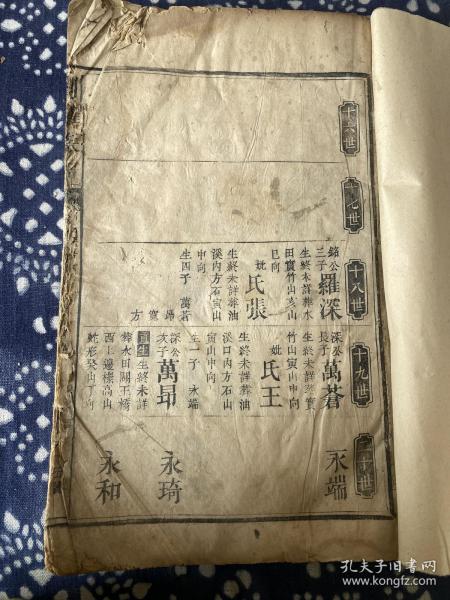 十六世
十七世
十八世
鎔公
三子
羅深
生終未詳葬水
田實竹山亥山
巳向
妣
張氏
生終未詳葬油
溪內方石寅山
申向
生四子
萬蒼
昂
寬
方
十九世
深公
長子
萬蒼
生終未詳葬實
竹山寅山申向
妣
王氏
生終未詳葬油
溪口內方石山
寅山申向
生一子
永端
深公
次子
萬昂
生終未詳
葬水田關王橋
西上邊樣高山
蛇形癸山丁向
二十世
永端
永琦
永和
孔夫子旧书网
www.kongfz.com